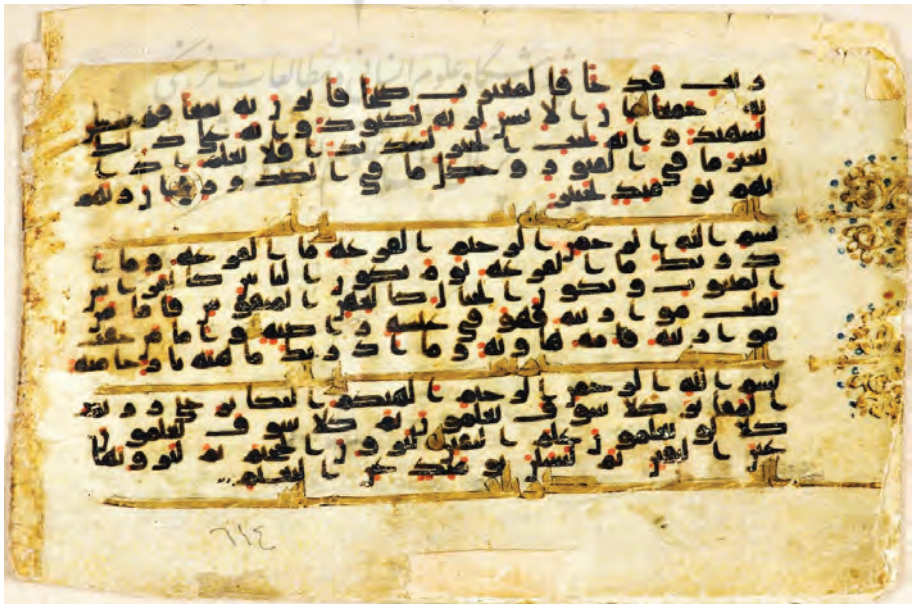 پژوهشگاه علوم انسانی و مطالعات فرهنگی
ريت قدحا فالمغيرت صبحا فاثرن به نقعا فوسطن
به جمعا ان الانسن لربه لكنود وانه على ذلك
لشهيد وانه لحب الخير لشديد افلا يعلم اذا
بعثر ما في القبور وحصل ما في الصدور ان ر
بهم بهم يومئذ لخبير
بسم الله الرحمن الرحيم القرعة ما القرعة وما ا
دريك ما القرعة يوم يكون الناس كالفراش
المبثوث وتكون الجبال كالعهن المنفوش فاما من
ثقلت موازينه فهو في عيشة راضية واما من خفت
موازينه فامه هاوية وما ادريك ما هيه نار حامية
بسم الله الرحمن الرحيم الهيكم التكاثر حتى زرتم
المقابر كلا سوف تعلمون ثم كلا سوف تعلمون
كلا لو تعلمون علم اليقين لترون الجحيم ثم لترونها
عين اليقين ثم لتسئلن يومئذ عن النعيم
٦١٤